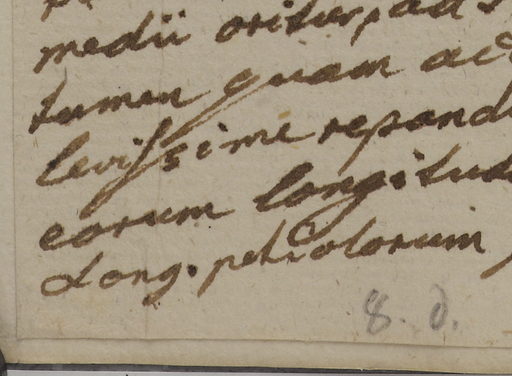 medii oritur, ad
tamen quam ad
levissime repand
eorum longitud
Long. petiolorum
8. d.